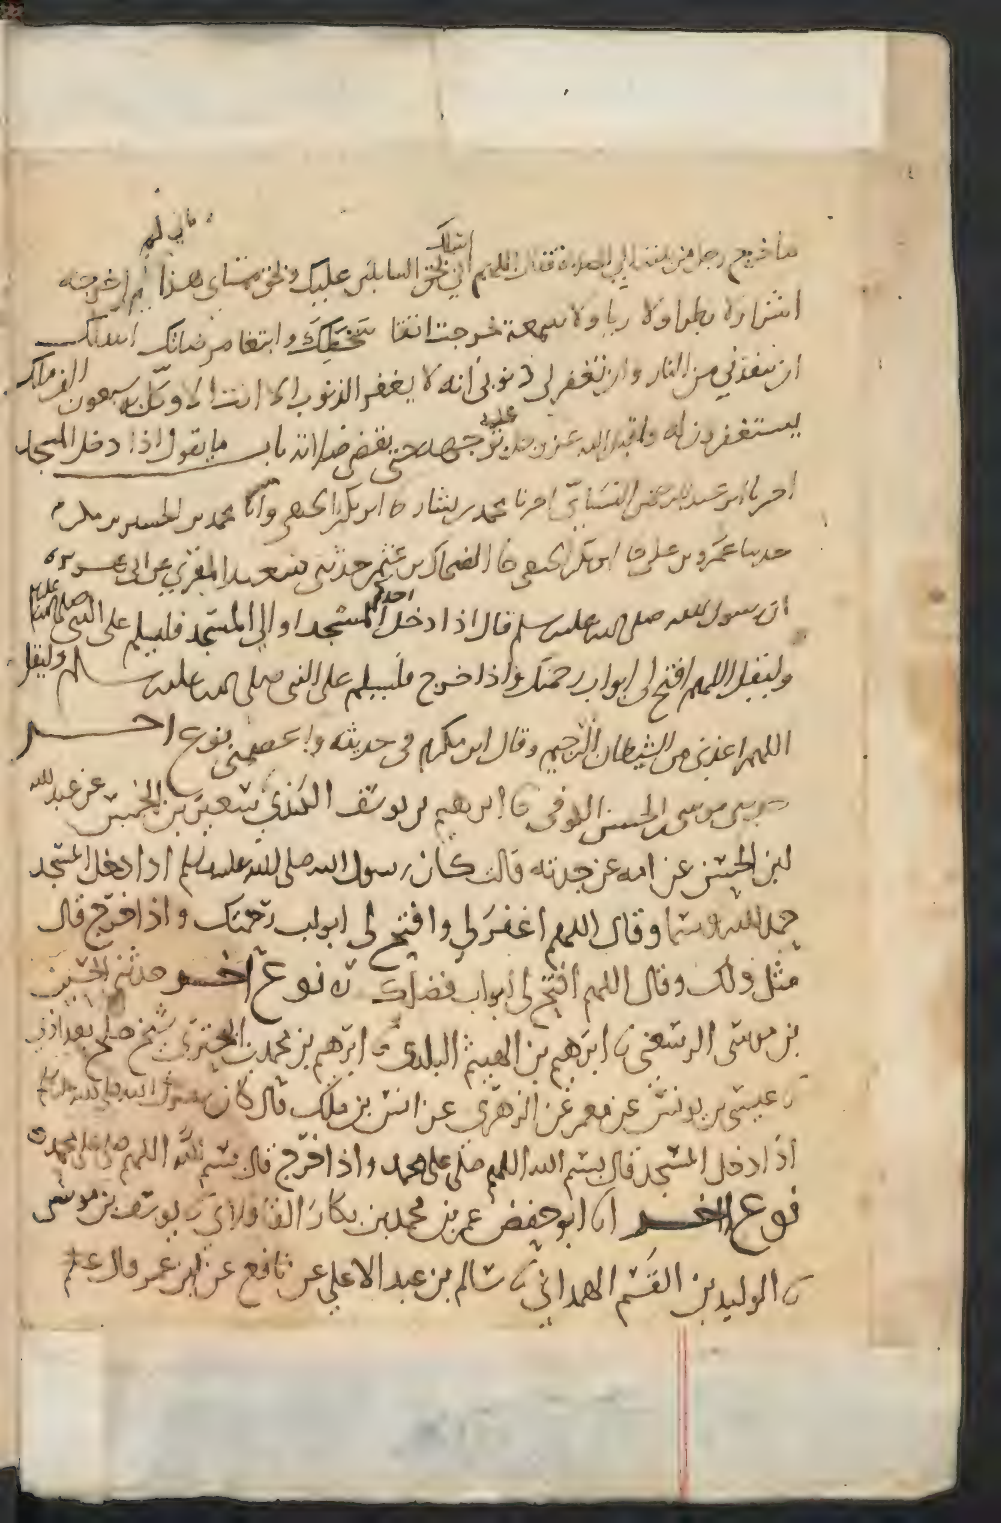 فاني لم
ما خرج رجل من بيته الي الصلاة فقال اللهم اني اسلك بحق السايلين عليك وبحق ممشاي هذا لم اخرجه
اشرا ولا بطرا ولا ريا ولا سمعة خرجت اتقا سخطك وابتغا مرضاتك اسلك
ان تنقذني من النار وان تغفر لي ذنوبي انه لا يغفر الذنوب الا انت الا وكل به سبعون الف ملك
يستغفرون له واقبل الله عز وجل عليه بوجهه حتى يقضي صلاته باب ما يقول اذا دخل المسجد
اخبرنا ابو عبد الرحمن النسائي اخبرنا محمد بن بشار ثنا ابو بكر الحنفي وانا محمد بن الحسين بن مكرم
حدثنا عمرو بن علي ثنا ابو بكر الحنفي ثنا الضحاك بن عثمن حدثني سعيد المقبري عن ابي هريرة
ان رسول الله صلى الله عليه وسلم قال اذا دخل احدكم المسجد او الي المسجد فليسلم على النبي صلى الله عليه
وليقل اللهم افتح لي ابواب رحمتك واذا خرج فليسلم على النبي صلى الله عليه وسلم وليقل
اللهم اعذني من الشيطان الرجيم وقال ابن مكرم في حديثه واعصمني نوع اخر
حدثني موسى بن الحسن الكوفي ثنا ابرهيم بن يوسف الكندي ثنا سعير بن الخمس عن عبد الله
ابن الحسن عن امه عن جدته قالت كان رسول الله صلى الله عليه وسلم اذا دخل المسجد
حمد الله وسما وقال اللهم اغفر لي وافتح لي ابواب رحمتك واذا خرج قال
مثل ذلك وقال اللهم افتح لي ابواب فضلك نوع اخر حدثني الحسين
بن موسى الرسعني ثنا ابرهيم بن الهيثم البلدي ثنا ابرهيم بن محمد بن البختري شيخ صالح بغداذي
ثنا عيسى بن يونس عن معمر عن الزهري عن انس بن ملك قال كان رسول الله صلى الله عليه وسلم
اذا دخل المسجد قال بسم الله اللهم صلي على محمد واذا خرج قال بسم الله اللهم صلي على محمد
نوع اخر انا ابو حفص عمر بن محمد بن بكار القافلاي ثنا يوسف بن موسى
ثنا الوليد بن القسم الهمداني ثنا سالم بن عبد الاعلي عن نافع عن ابن عمر قال علم